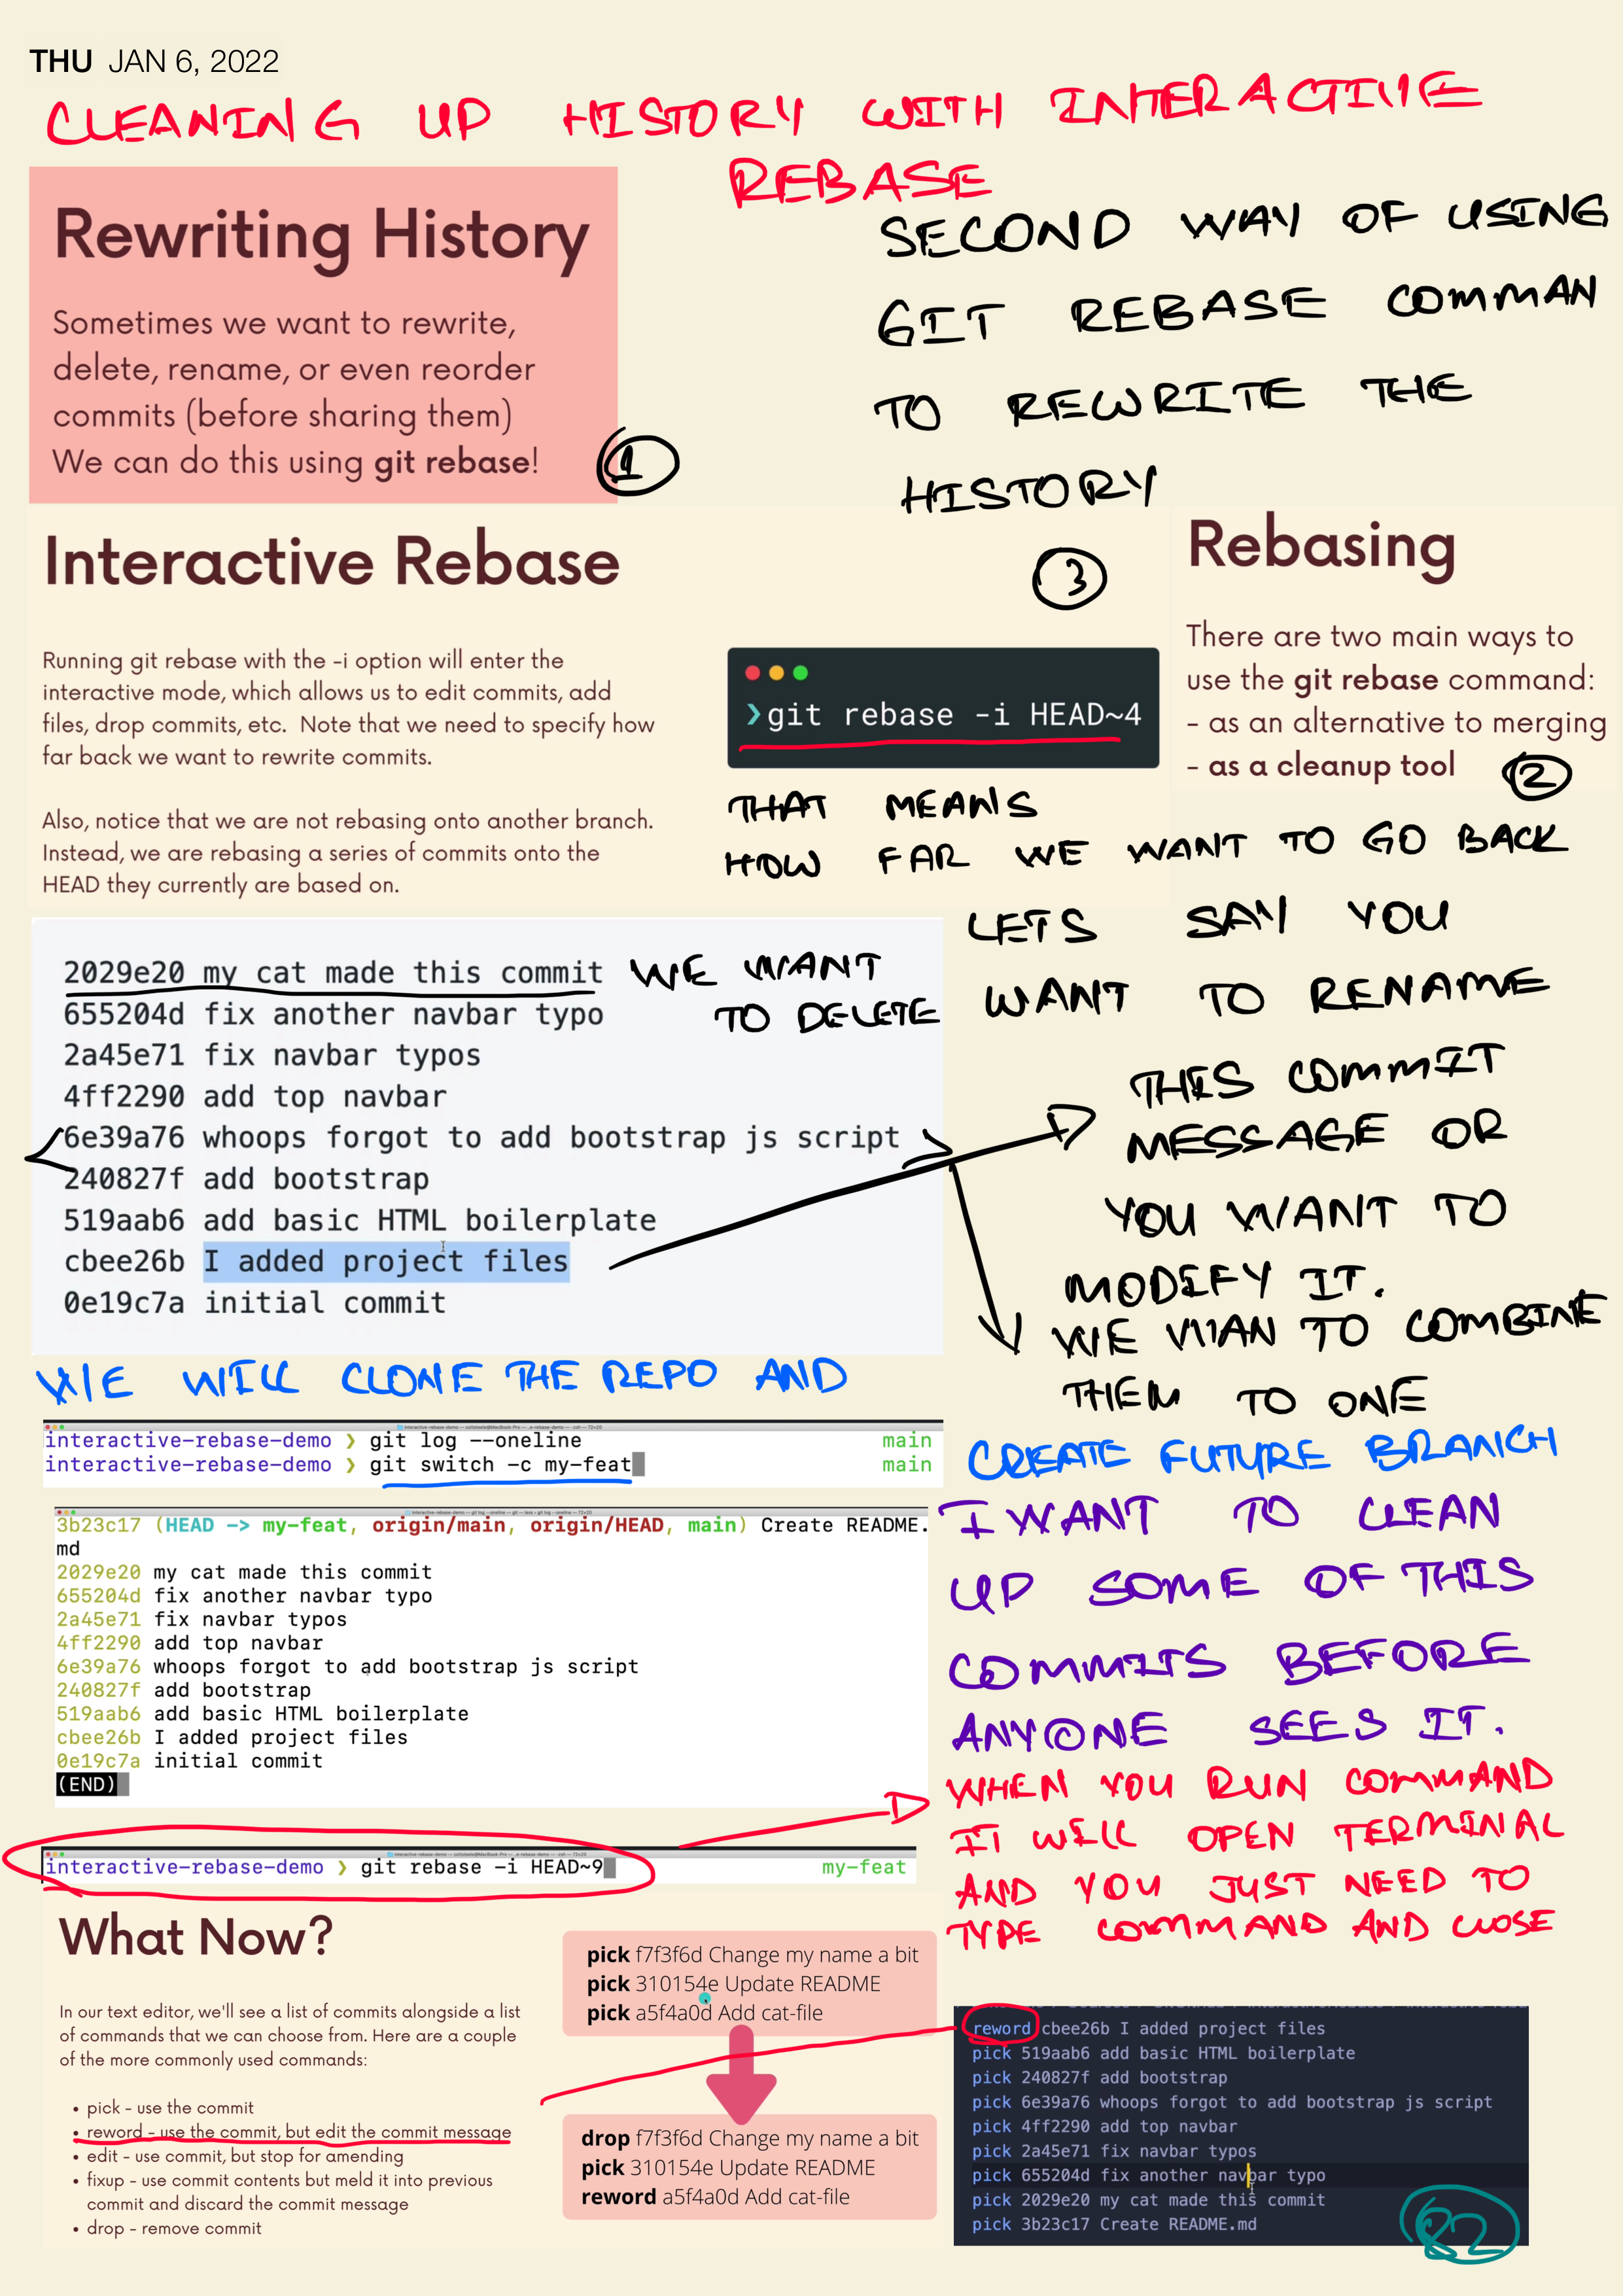 THU JAN 6, 2022
CLEANING UP HISTORY WITH INTERACTIVE
REBASE
Rewriting History
Sometimes we want to rewrite,
delete, rename, or even reorder
commits (before sharing them)
We can do this using git rebase!
1
SECOND WAY OF USING
GIT REBASE COMMAN
TO REWRITE THE
HISTORY
Interactive Rebase
Running git rebase with the -i option will enter the
interactive mode, which allows us to edit commits, add
files, drop commits, etc. Note that we need to specify how
far back we want to rewrite commits.
Also, notice that we are not rebasing onto another branch.
Instead, we are rebasing a series of commits onto the
HEAD they currently are based on.
3
❯git rebase -i HEAD~4
Rebasing
There are two main ways to
use the git rebase command:
- as an alternative to merging
- as a cleanup tool
2
THAT MEANS
HOW FAR WE WANT TO GO BACK
2029e20 my cat made this commit
655204d fix another navbar typo
2a45e71 fix navbar typos
4ff2290 add top navbar
6e39a76 whoops forgot to add bootstrap js script
240827f add bootstrap
519aab6 add basic HTML boilerplate
cbee26b I added project files
0e19c7a initial commit
WE WANT
TO DELETE
LETS SAY YOU
WANT TO RENAME
THIS COMMIT
MESSAGE OR
YOU WANT TO
MODIFY IT.
WE WAN TO COMBINE
THEM TO ONE
WE WILL CLONE THE REPO AND
CREATE FUTURE BRANCH
interactive-rebase-demo ❯ git log --oneline main
interactive-rebase-demo ❯ git switch -c my-feat main
3b23c17 (HEAD -> my-feat, origin/main, origin/HEAD, main) Create README.
md
2029e20 my cat made this commit
655204d fix another navbar typo
2a45e71 fix navbar typos
4ff2290 add top navbar
6e39a76 whoops forgot to add bootstrap js script
240827f add bootstrap
519aab6 add basic HTML boilerplate
cbee26b I added project files
0e19c7a initial commit
(END)
I WANT TO CLEAN
UP SOME OF THIS
COMMITS BEFORE
ANYONE SEES IT.
interactive-rebase-demo ❯ git rebase -i HEAD~9 my-feat
WHEN YOU RUN COMMAND
IT WILL OPEN TERMINAL
AND YOU JUST NEED TO
TYPE COMMAND AND CLOSE
What Now?
In our text editor, we'll see a list of commits alongside a list
of commands that we can choose from. Here are a couple
of the more commonly used commands:
• pick - use the commit
• reword - use the commit, but edit the commit message
• edit - use commit, but stop for amending
• fixup - use commit contents but meld it into previous
commit and discard the commit message
• drop - remove commit
pick f7f3f6d Change my name a bit
pick 310154e Update README
pick a5f4a0d Add cat-file
drop f7f3f6d Change my name a bit
pick 310154e Update README
reword a5f4a0d Add cat-file
reword cbee26b I added project files
pick 519aab6 add basic HTML boilerplate
pick 240827f add bootstrap
pick 6e39a76 whoops forgot to add bootstrap js script
pick 4ff2290 add top navbar
pick 2a45e71 fix navbar typos
pick 655204d fix another navbar typo
pick 2029e20 my cat made this commit
pick 3b23c17 Create README.md